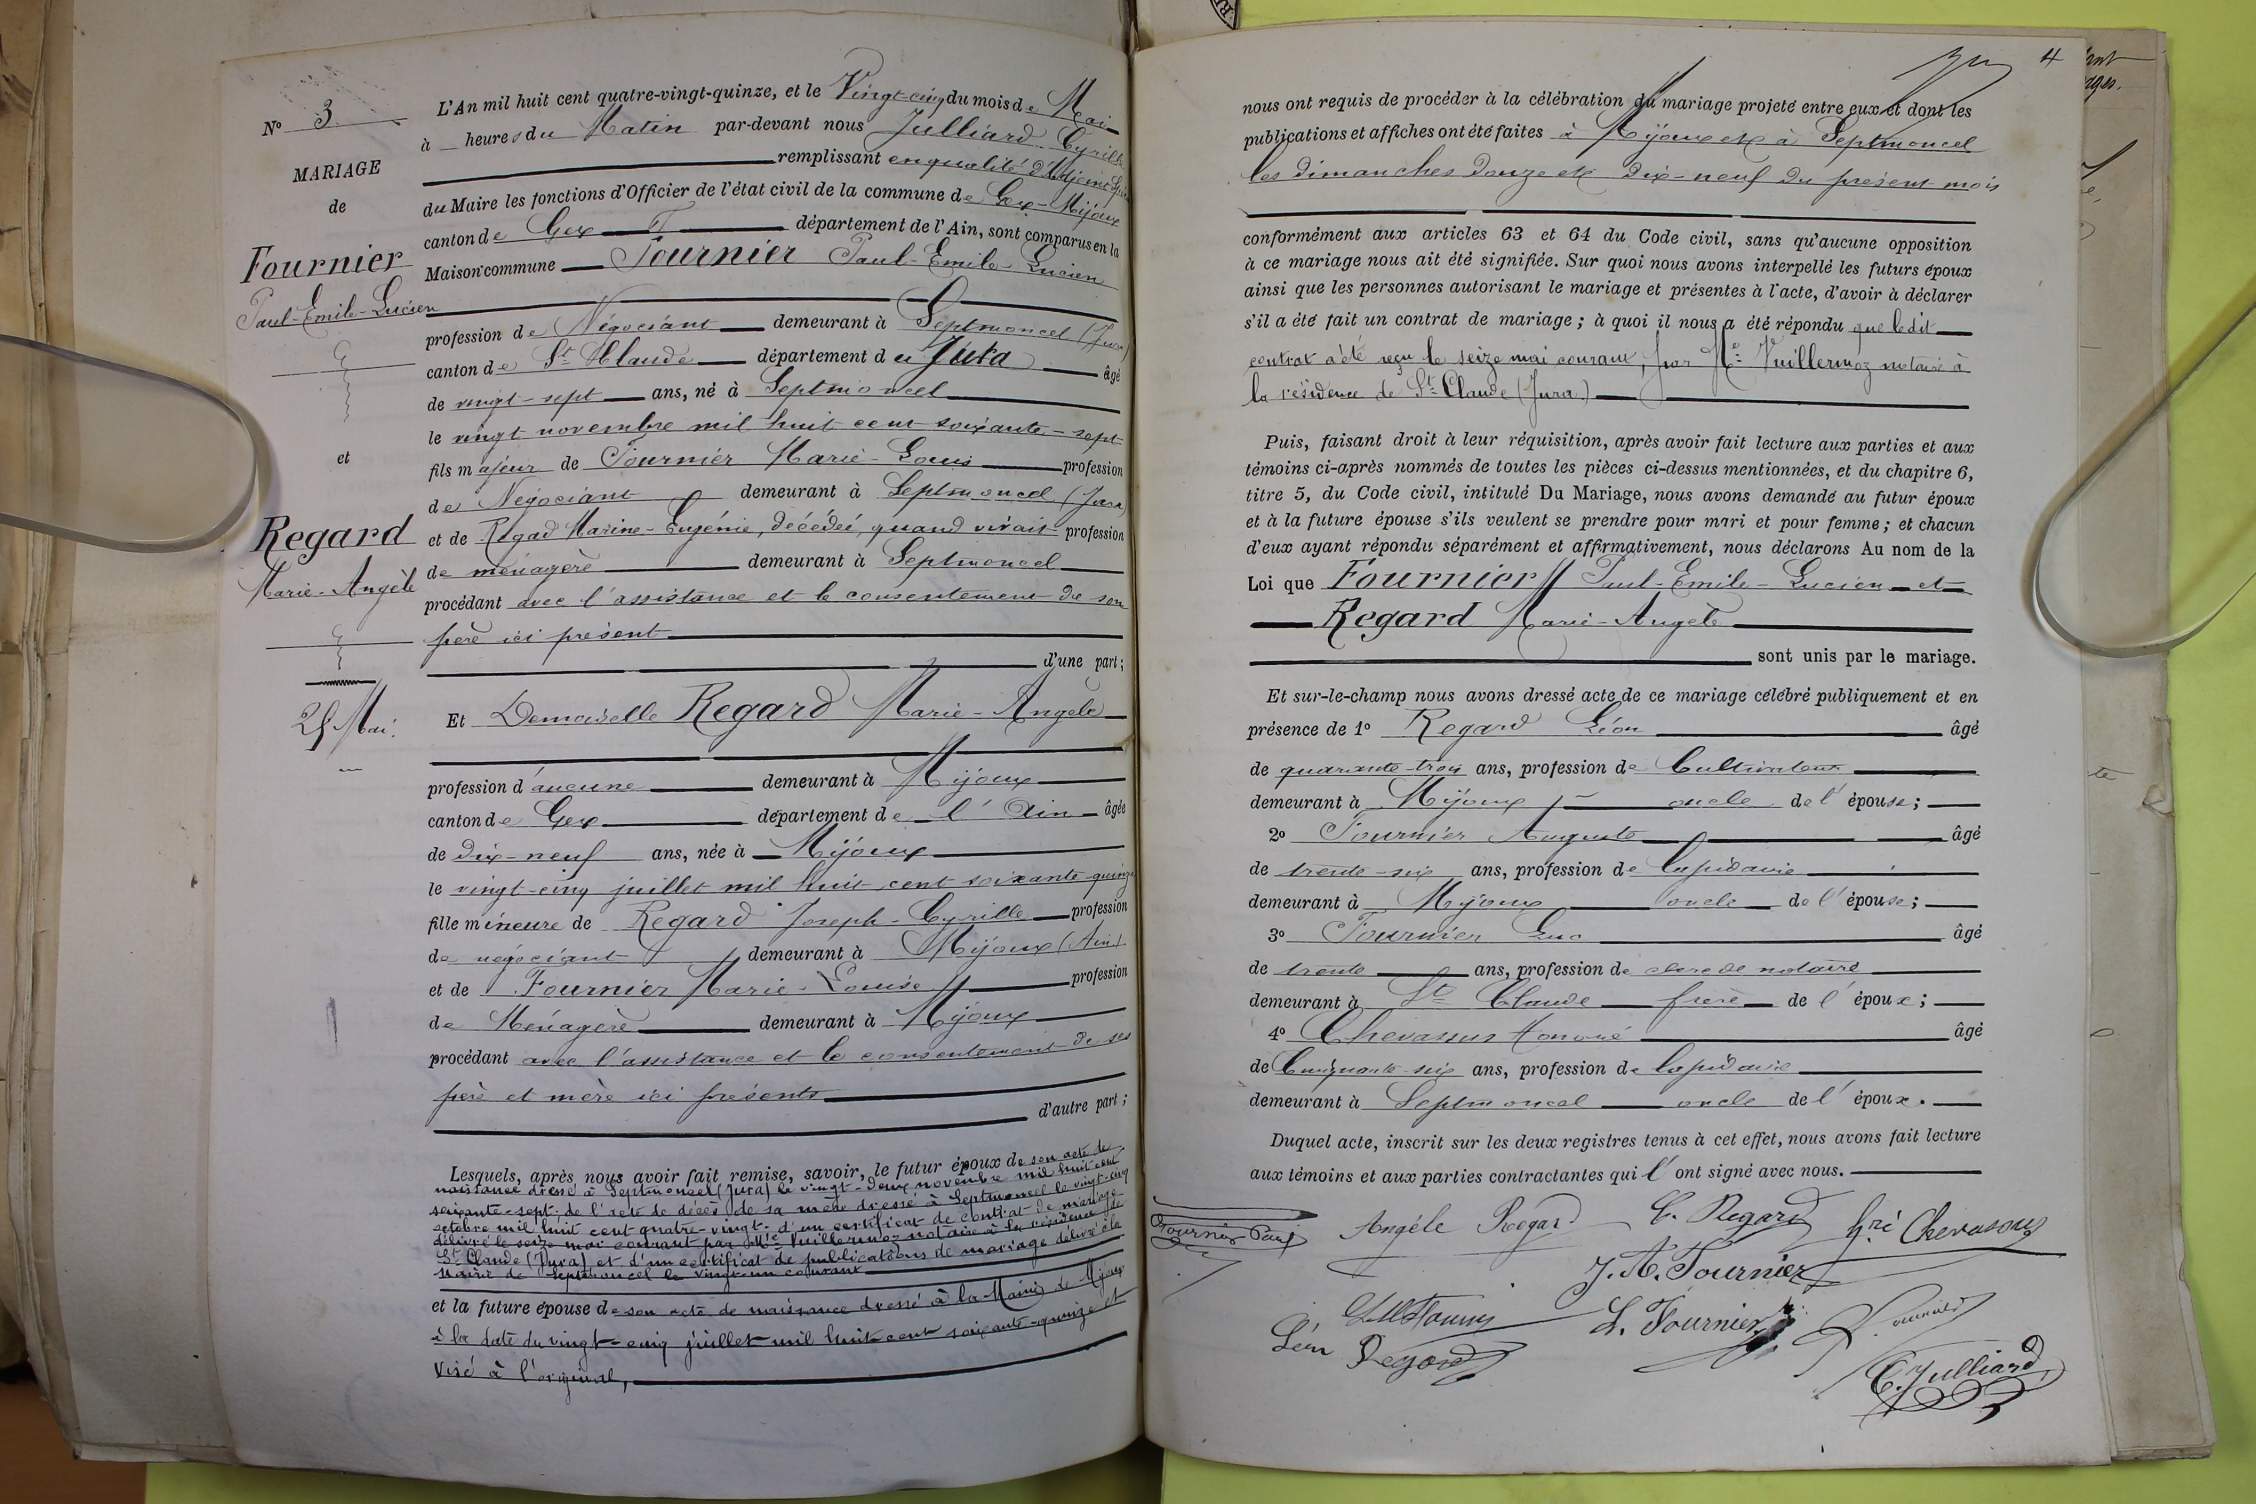 N° 3
MARIAGE
de
Fournier
Paul-Emile-Lucien
et
Regard
Marie-Angèle
25 Mai.
L'An mil huit cent quatre-vingt-quinze, et le Vingt-cinq du mois de Mai
à heures du Matin par-devant nous Julliard Cyrille
remplissant en qualité d'Adjoint Spécial
du Maire les fonctions d'Officier de l'état civil de la commune de Gex-Mijoux
canton de Gex département de l'Ain, sont comparus en la
Maison commune Fournier Paul-Emile-Lucien
profession de Négociant demeurant à Septmoncel (Jura)
canton de St Claude département du Jura âgé
de vingt-sept ans, né à Septmoncel
le vingt novembre mil huit cent soixante-sept
fils majeur de Fournier Marie-Louis profession
de Négociant demeurant à Septmoncel (Jura)
et de Regad Marine-Eugénie, décédée, quand vivait profession
de ménagère demeurant à Septmoncel
procédant avec l'assistance et le consentement de son
père ici présent
d'une part;
Et Demoiselle Regard Marie-Angèle
profession d'aucune demeurant à Mijoux
canton de Gex département de l'Ain âgée
de dix-neuf ans, née à Mijoux
le vingt-cinq juillet mil huit cent soixante-quinze
fille mineure de Regard Joseph-Cyrille profession
de négociant demeurant à Mijoux (Ain)
et de Fournier Marie-Louise profession
de Ménagère demeurant à Mijoux
procédant avec l'assistance et le consentement de ses
père et mère ici présents
d'autre part;
Lesquels, après nous avoir fait remise, savoir, le futur époux de son acte de
naissance dressé à Septmoncel (Jura) le vingt-deux novembre mil huit cent
soixante-sept. de l'acte de décès de sa mère dressé à Septmoncel le vingt-cinq
octobre mil huit cent quatre-vingt. d'un certificat de contrat de mariage
délivré le seize mai courant par Me Vuillermoz notaire à la résidence de
St Claude (Jura) et d'un certificat de publications de mariage délivré à la
Mairie de Septmoncel le vingt-un courant
et la future épouse de son acte de naissance dressé à la Mairie de Mijoux
à la date du vingt-cinq juillet mil huit cent soixante-quinze et
visé à l'original,
4
nous ont requis de procéder à la célébration du mariage projeté entre eux et dont les
publications et affiches ont été faites à Mijoux et à Septmoncel
les dimanches douze et dix-neuf du présent mois
conformément aux articles 63 et 64 du Code civil, sans qu'aucune opposition
à ce mariage nous ait été signifiée. Sur quoi nous avons interpellé les futurs époux
ainsi que les personnes autorisant le mariage et présentes à l'acte, d'avoir à déclarer
s'il a été fait un contrat de mariage; à quoi il nous a été répondu que ledit
contrat a été reçu le seize mai courant, par Me Vuillermoz notaire à
la résidence de St Claude (Jura)
Puis, faisant droit à leur réquisition, après avoir fait lecture aux parties et aux
témoins ci-après nommés de toutes les pièces ci-dessus mentionnées, et du chapitre 6,
titre 5, du Code civil, intitulé Du Mariage, nous avons demandé au futur époux
et à la future épouse s'ils veulent se prendre pour mari et pour femme; et chacun
d'eux ayant répondu séparément et affirmativement, nous déclarons Au nom de la
Loi que Fournier Paul-Emile-Lucien et
Regard Marie-Angèle
sont unis par le mariage.
Et sur-le-champ nous avons dressé acte de ce mariage célébré publiquement et en
présence de 1° Regard Léon âgé
de quarante-trois ans, profession de Cultivateur
demeurant à Mijoux oncle de l'épouse;
2° Fournier Auguste âgé
de trente-six ans, profession de lapidaire
demeurant à Mijoux oncle de l'épouse;
3° Fournier Luc âgé
de trente ans, profession de clerc de notaire
demeurant à St Claude frère de l'époux;
4° Chevassus Honoré âgé
de Cinquante-six ans, profession de lapidaire
demeurant à Septmoncel oncle de l'époux.
Duquel acte, inscrit sur les deux registres tenus à cet effet, nous avons fait lecture
aux témoins et aux parties contractantes qui l'ont signé avec nous.
Fournier Paul Angèle Regard C. Regard Hré Chevassus
J. A. Fournier
L. Fournier
Léon Regard
C. Julliard